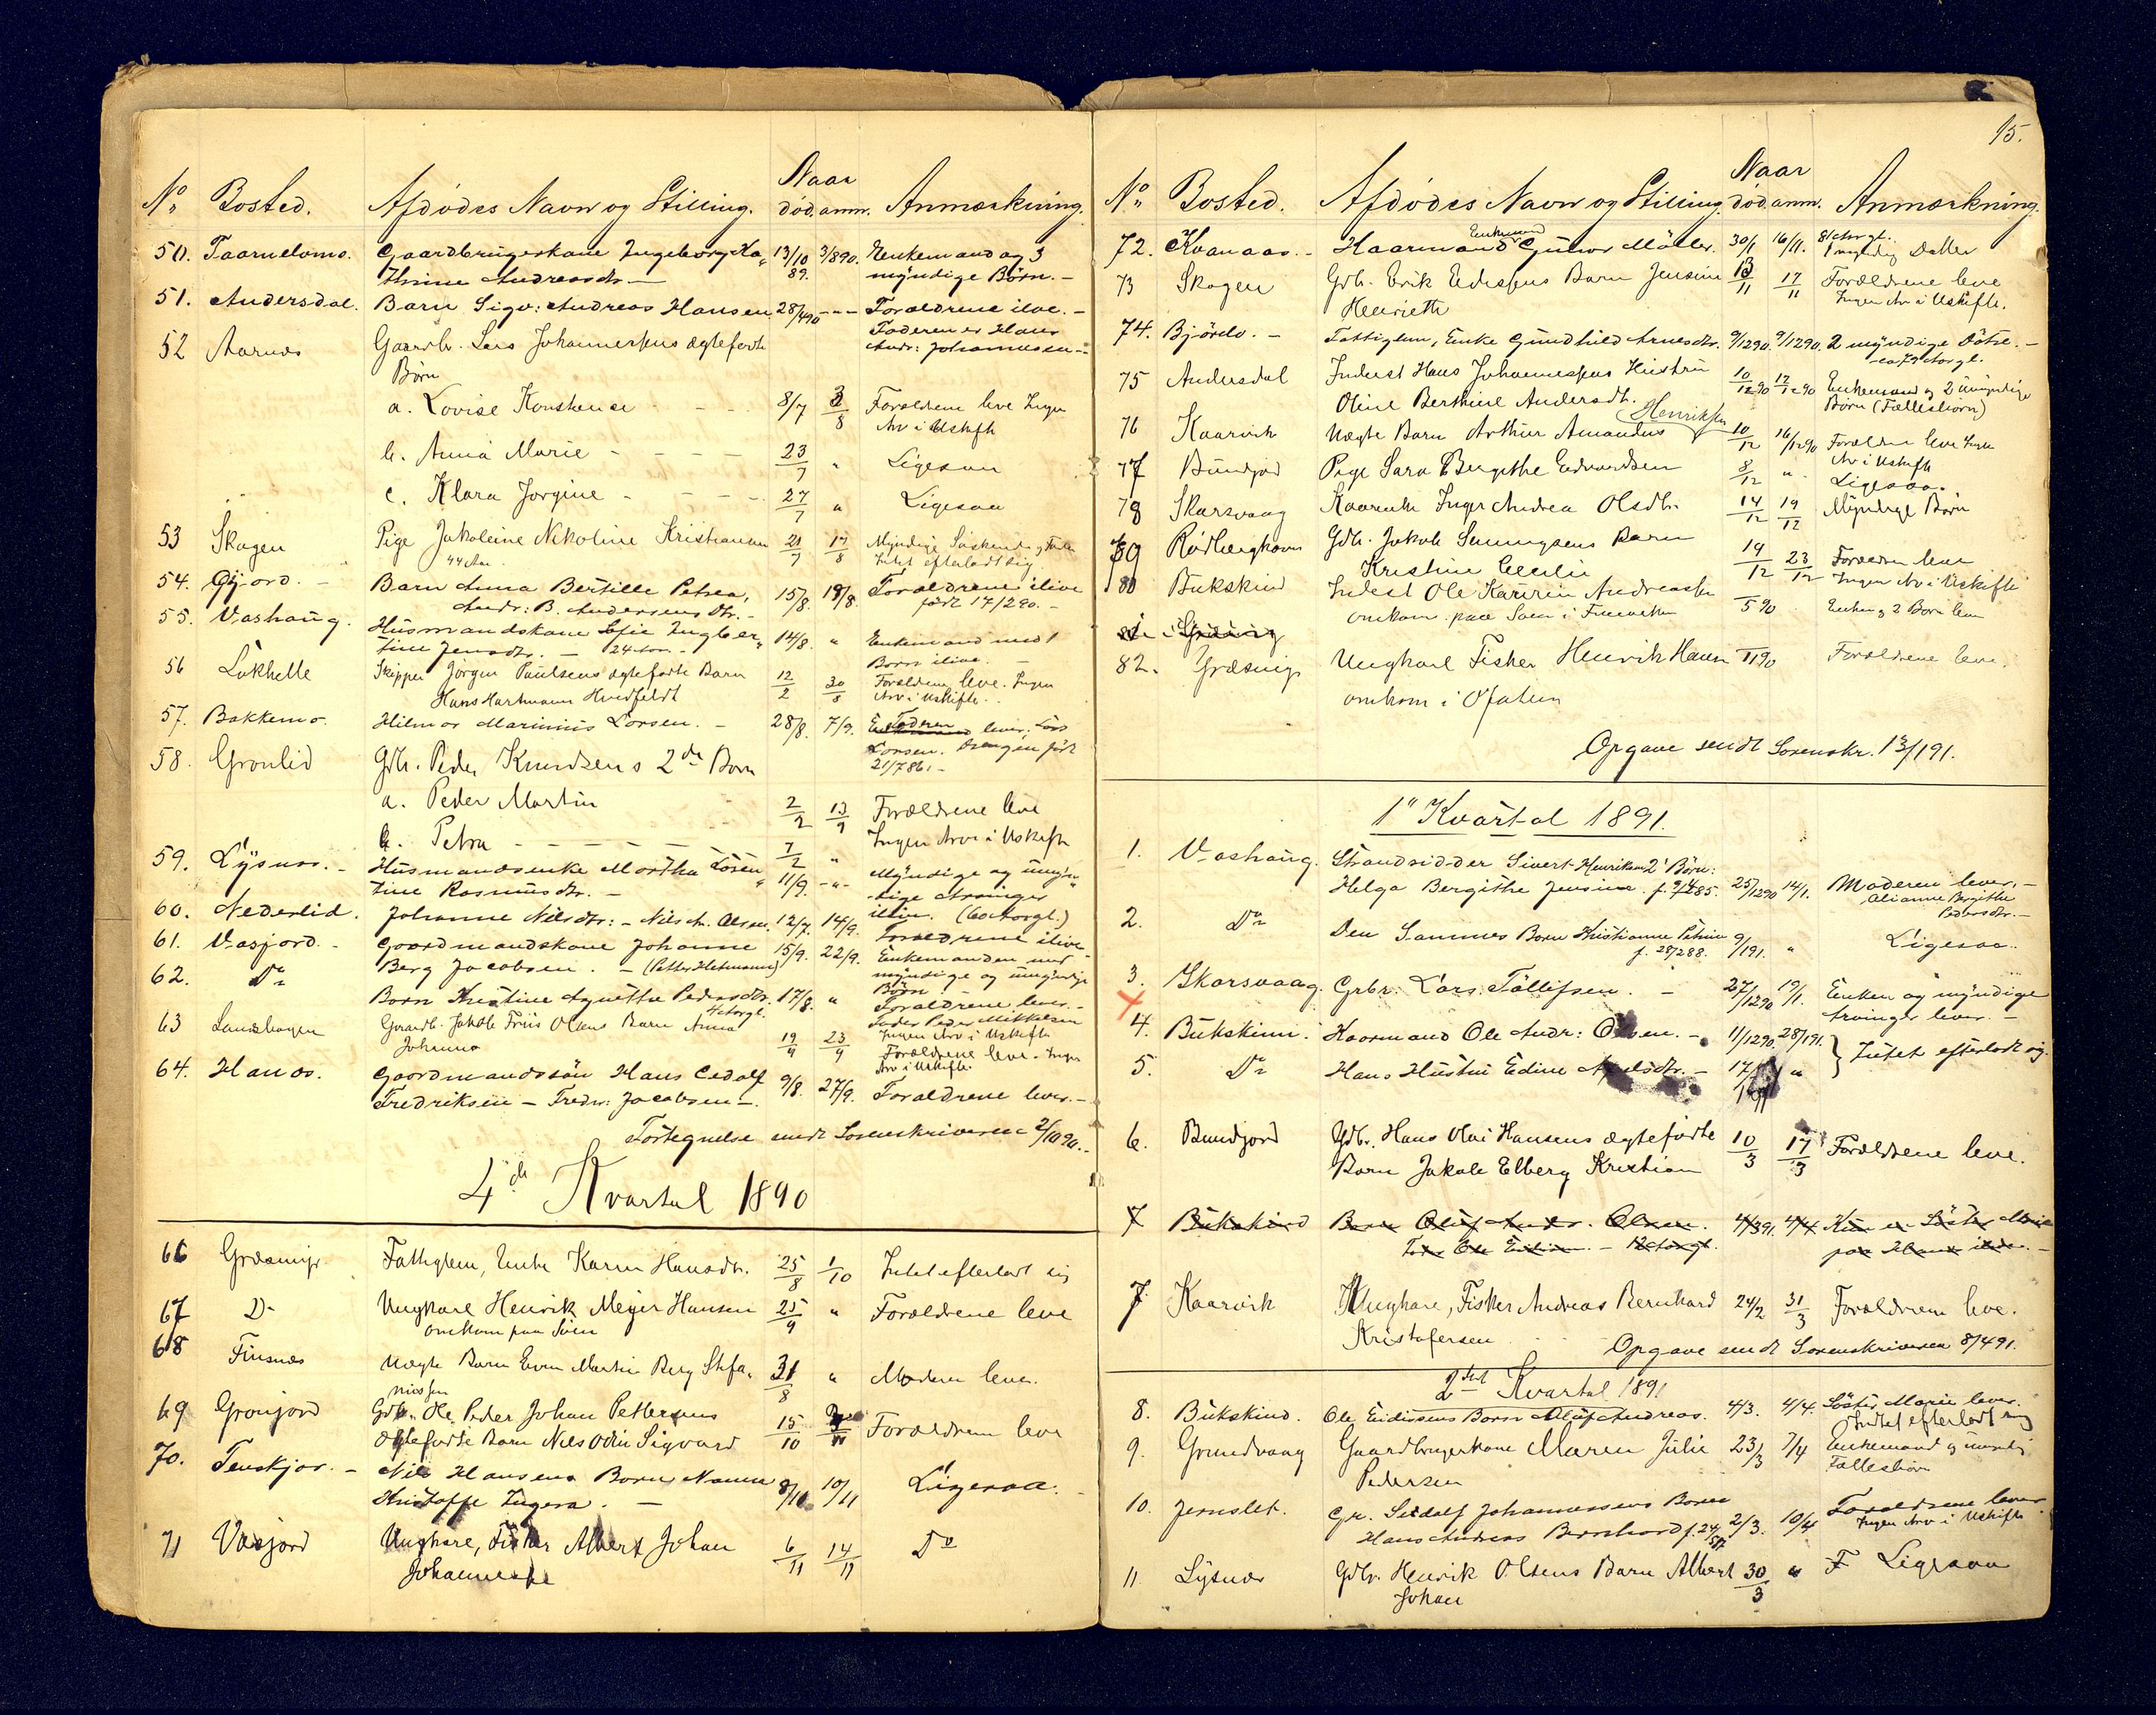 Naar
No Bosted. Afdödes Navn og Stilling. död. anm. Anmærkning.
50. Taarnelvmo. Gaardbrugerskone Ingeborg Ka- 13/10 3/890. Enkemand og 3
thrine Andreasdr — 89. myndige Børn. —
51. Andersdal. Barn Sigv: Andreas Hansen 28/490 - " - Forældrene ilve. —
Faderen er Hans
52 Aarnes Gaardb. Lars Johannessens ægtefødte Andr: Johannesen —
Børn
a. Lovise Konstance - - - 8/7 3/8 Forældrene leve Ingen
Arv i Uskifte
b. Anna Marie - - - - 23/7 " Ligesaa
c. Klara Jorgine - - - - 27/7 " Ligesaa
53 Skogen Pige Jakobine Nikoline Kristiansen 21/7 17/8 Myndige Søskende
44 Aar Intet efterladt sig
54. Gjord. - Barn Anna Bertille Petrea, 15/8. 18/8. Forældrene ilive
Andr: B. Andersens Dtr. - født 17/290. —
55. Vashaug. Husmandskone Sofie Ingber- 14/8. " Enkemand med 1
tine Jensdtr. — 24 Aar. - Barn ilive. —
56 Lökhelle Skipper Jörgen Paulsens ægtefødte Barn 12/2 30/8 Forældrene leve. Ingen
Hans Hartmann Hvedfeldt Arv i Uskifte.
57. Bakkemo. Hilmar Marinius Larsen. - 28/8. 7/9. Faderen lever, Lars
Larsen. Drengen født
58. Grønlid Gdb. Peder Knudsens 2de Børn 21/786. -
a. Peder Martin 2/2 13/9 Forældrene leve
b. Petra - - - - - - 7/2 " Ingen Arv i Uskifte
59. Lysnes. - Husmandsenke Martha Loren- 11/9. - " - Myndige og umyn-
tine Rasmusdtr. - dige Arvinger
60. Nederlid. Johanne Nilsdtr: - Nils A. Olsen. 12/7. 14/9. ilive. (60 Aargl.)
Forældrene ilive
61. Vasjord. - Gaardmandskone Johanne 15/9. 22/9. Enkemanden med
Berg Jacobsen. - (Petter Hetmann) myndige og umyndige
Børn
62. Do Barn Kristine Agnethe Pedersdtr. 17/8. " Forældrene lever. -
4 Aargl. Fader Peder Mikkelsen
63 Laneshagen Gaardb. Jakob Friis Olsens Barn Anna 19/9 23/9 Ingen Arv i Uskifte
Johanna Forældrene leve. Ingen
Arv i Uskifte.
64. Hanes. Gaardmandssön Hans Cedolf 9/8. 27/9. Forældrene lever. -
Fredriksen — Fredr: Jacobsen -
Fortegnelse sendt Sorenskriveren 2/1090. -
4de Kvartal 1890
66 Græsmyr. Fattiglem, Enke Karen Hansdtr. 25/8 1/10 Intet efterladt sig
67 Do Ungkarl Henrik Meyer Hansen 25/9 " Forældrene leve
omkom paa Søen
68 Finsnæs Uægte Barn Even Martin Berg Stefa- 31/8 " Moderen lever.
niussen
69 Grønjord Gdb. Ole Peder Johan Pettersens 15/10 Forældrene leve
ægtefødte Barn Nils Odin Sigvard
70. Tenskjær. - Nils Hansens Barn, Nanna 8/10 10/11 Ligesaa. -
Kristoffe Ingera. —
71 Vasjord Ungkare, Fisker Albert Johan 6/11 14/11 Do
Johannesse
15.
Naar
No Bosted. Afdödes Navn og Stilling. död. anm. Anmærkning.
72. Kvanaas. - Kaarmand Enkemand Gunnar Möller. 30/1 16/11. 81 Aargl.
1 myndig Datter
73 Skogen Gdb. Erik Edissens Barn Jensine 13/11 17/11 Forældrene leve
Henriette Ingen Arv i Uskifte.
74. Bjørelv. - Fattiglem, Enke Gundhild Arnesdtr. 9/1290. 9/1290. 2 myndige Døtre. -
ca 79 Aargl.
75 Andersdal Inderst Hans Johannessens Hustru 10/1290 12/1290 Enkemand og 2 umyndige
Oline Berthine Andersdt. Børn (Fællesbørn)
Henriksen
76 Kaarvik Uægte Barn Arthur Amandus 10/12 16/1290 Forældrene leve Ingen
Arv i Uskifte
77 Bundjord Pige Sara Bergithe Edvardsen 8/12 " Ligesaa.
78 Skarsvaag Kaarenke Inger Andrea Olsdtr. 14/12 19/12 Myndige Børn
79 Rødberghavn Gdb. Jakob Senningsens Barn 19/12 23/12 Forældren leve
Kristine Cecilie Ingen Arv i Uskifte
80 Bukskind Inderst Ole Karinin Andreassen 5/90 Enken og 2 Børn leve
omkom paa Søen i Finmarken
81 Græsmyr
82. Græsmyr Ungkarl Fisker Henrik Hansen 11/90 Forældrene leve.
omkom i Ofoten
Opgave sendt Sorenskr. 13/191.
1st Kvartal 1891.
1. Vashaug. Strandsidder Sivert Henriksen 2 Børn:
Helga Bergithe Jensine f. 9/485. 25/1290 14/1. Moderen lever. -
Alianne Bergithe
Pedersdtr. -
2. Do Den Sammes Barn Kristianne Petrine 9/191. " Ligesaa.
f. 28/288.
3. Skarsvaag. Grbr: Lars Tollefsen. - 27/1290 19/1. Enken og myndige
Arvinger lever. -
4. Bukskinn. Kaarmand Ole Andr: Olsen. - 11/1290. 28/191. } Intet efterladt sig.
5. Do Hans Hustru Edine - 17/1 "
6. Bundjord Gdbr. Hans Olai Hansens ægtefødte 10/3 17/3 Forældrene leve.
Barn Jakob Elberg Kristian
7 Bukskind Barn Oluf Andr. Olsen. 4/391. 4/4 Kun en Søster Marie
Fader Ole Eidissen. - 12 Aargl.
7 Kaarvik Ungkare, Fisker Andreas Bernhard 24/2 31/3 Forældrene leve.
Kristofersen
Opgave sendt Sorenskriveren 8/491.
2det Kvartal 1891
8. Bukskind. Ole Eidissens Barn Oluf Andreas. 4/3. 4/4. Söster Marie lever.
Intet efterladt sig
9. Grundvaag Gaardbrugerkone Maren Julie 23/3 7/4 Enkemand og umyndig
Pedersen Fællesbørn
10. Jernslet. Gr. Sedolf Johannessens Barn 2/3. 10/4 Forældrene lever
Hans Andreas Bernhard f. 24/ Ingen Arv i Uskifte
11 Lysnes Gdbr. Henrik Olsens Barn Albert 30/3 " F Ligesaa
Johan